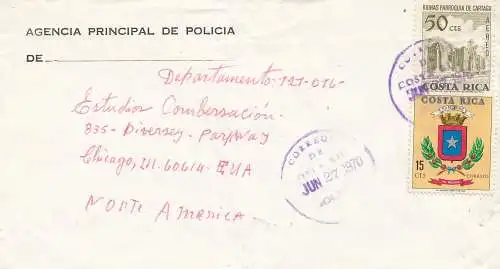 AGENCIA PRINCIPAL DE POLICIA
DE
RUINAS PARROQUIA DE CARTAGO
50 CTS
AEREO
COSTA RICA
COSTA RICA
15
CTS
CORREOS
DE
JUN 27 1970
Departamento: 121-016-
Estudios Combersación.
835-Diversey-Parkway
Chicago, Ill. 60614-EUA
Norte America-